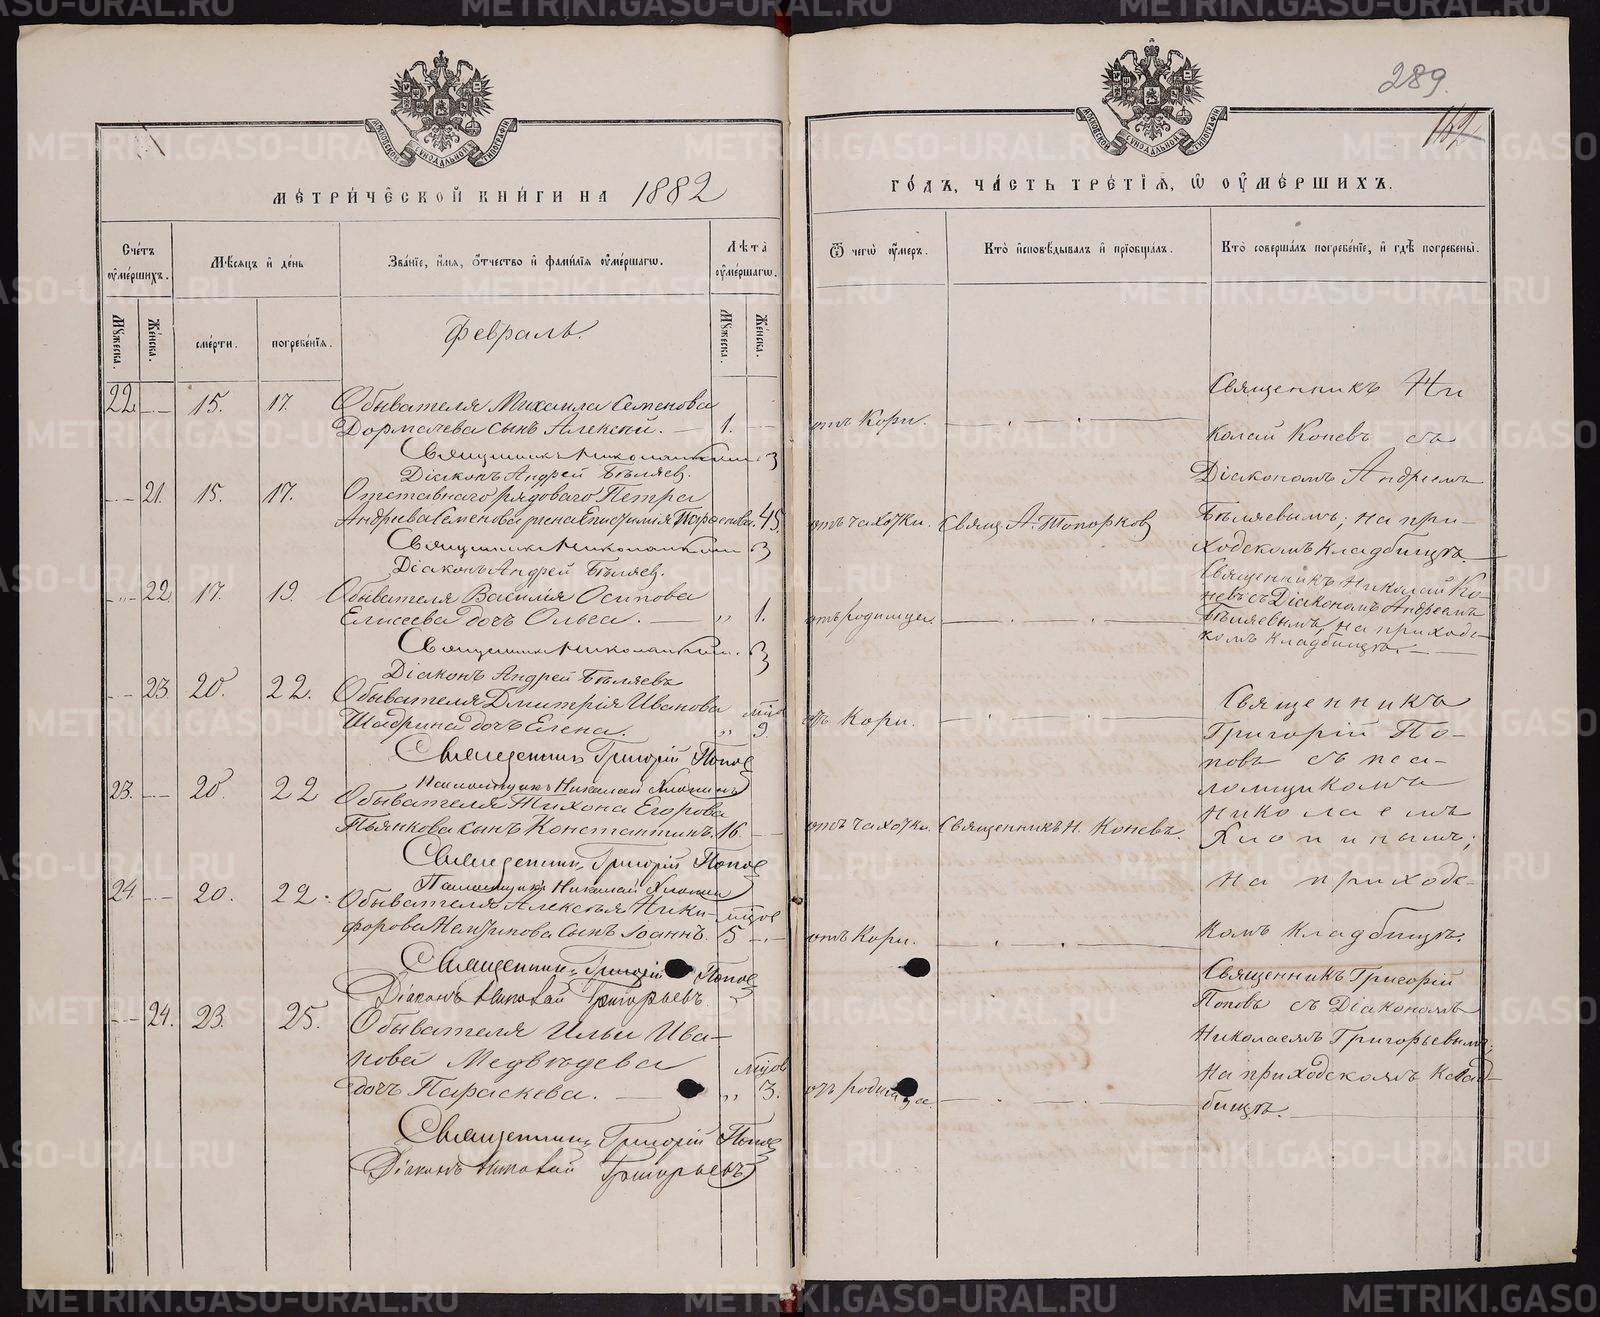 289.
142
МЕТРИЧЕСКОЙ КНИГИ НА 1882
ГОДЪ, ЧАСТЬ ТРЕТІЯ, Ѡ ОУМЕРШИХЪ.
Счетъ оумершихъ.
Мѣсяцъ и день
Званіе, имя, отчество и фамилія оумершагѡ.
Лѣта оумершагѡ.
Ѿ чегѡ оумеръ.
Кто исповѣдывалъ и пріобщалъ.
Кто совершалъ погребеніе, и гдѣ погребены.
Мꙋжеска.
Женска.
смерти.
погребенія.
Мꙋжеска.
Женска.
Февраль.
22 15. 17. Обывателя Михаила Семенова
Дормачева сынъ Алексій. 1. отъ Кори.
Священникъ Николай Коневъ
Діаконъ Андрей Бѣляевъ.
21. 15. 17. Отставнаго рядоваго Петра
Андреева Семенова жена Епистимія 45. отъ чахотки. Свящ. А. Топорковъ
Священникъ Николай Коневъ
Діаконъ Андрей Бѣляевъ.
Священникъ Ни
колай Коневъ съ
Діакономъ Андреемъ
Бѣляевымъ; на при-
ходскомъ кладбищѣ.
22 17. 19. Обывателя Василія Осипова
Елисеева дочь Ольга. „ 1. отъ родимца.
Священникъ Николай Коневъ.
Діаконъ Андрей Бѣляевъ
Священникъ Николай Ко-
невъ съ Діакономъ Андреемъ
Бѣляевымъ, на приходс-
комъ кладбищѣ.
23. 20. 22. Обывателя Дмитрія Иванова
Шадрина дочь Елена. „ мцов 9. отъ Кори.
Священникъ Григорій Поповъ
Псаломщикъ Николай Хлопинъ
23. 20. 22 Обывателя Тихона Егорова
Пьянкова сынъ Константинъ. 16 отъ чахотки. Священникъ Н. Коневъ.
Священникъ Григорій Поповъ
Псаломщикъ Николай Хлопинъ
24. 20. 22. Обывателя Алексѣя Ники-
форова сынъ Іоаннъ. мцов 5 отъ Кори.
Священникъ Григорій Поповъ
Діаконъ Николай Григорьевъ
Священникъ
Григорій По-
повъ съ пса-
ломщикомъ
Николаемъ
Хлопинымъ;
на приходс-
комъ кладбищѣ.
24. 23. 25. Обывателя Ильи Ива-
нова Медвѣдева
дочь Параскева. „ мцов 3. отъ родимца.
Священникъ Григорій Поповъ
Діаконъ Николай Григорьевъ
Священникъ Григорій
Поповъ съ Діакономъ
Николаемъ Григорьевымъ;
на приходскомъ клад-
бищѣ.
METRIKI.GASO-URAL.RU